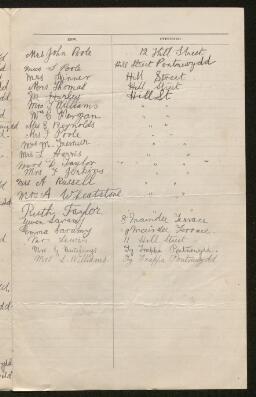 Mrs John Poole 12 Hill Street
Miss S Poole Hill Street Pontnewydd
Mrs Skinner Hill Street
Mrs Thomas Hill Street
M Harley Hill St
Mrs T Williams " "
Wm C Morgan " "
Mrs E Reynolds " "
Mrs J Poole " "
Mrs M " "
Mrs L Harris " "
Miss D Taylor " "
Mrs F Jenkins " "
Mrs A Russell " "
Mrs A Wheatstone " "
Ruth Taylor
Gwen Savory 3 Maindee Terrace
Emma Savory 9 Maindee Terrace
Lewis 11 Hill Street
Mrs G Ty Trappa Pontnewydd
Mrs S Williams Ty Trappa Pontnewydd